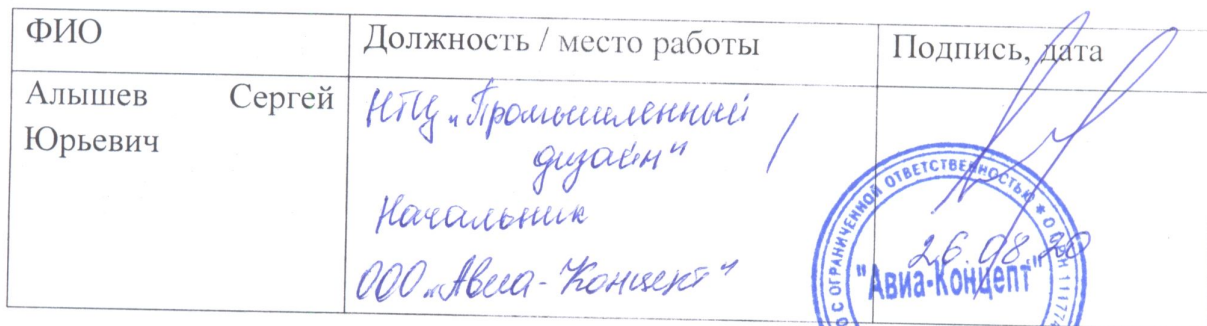 ФИО
Должность / место работы
Подпись, дата
Алышев Сергей
Юрьевич
НТЦ „Промышленный
дизайн“ /
Начальник
ООО „Авиа-Концепт“
С ОГРАНИЧЕННОЙ ОТВЕТСТВЕННОСТЬЮ * ОГРН 11177
26.08.20
"Авиа-Концепт"